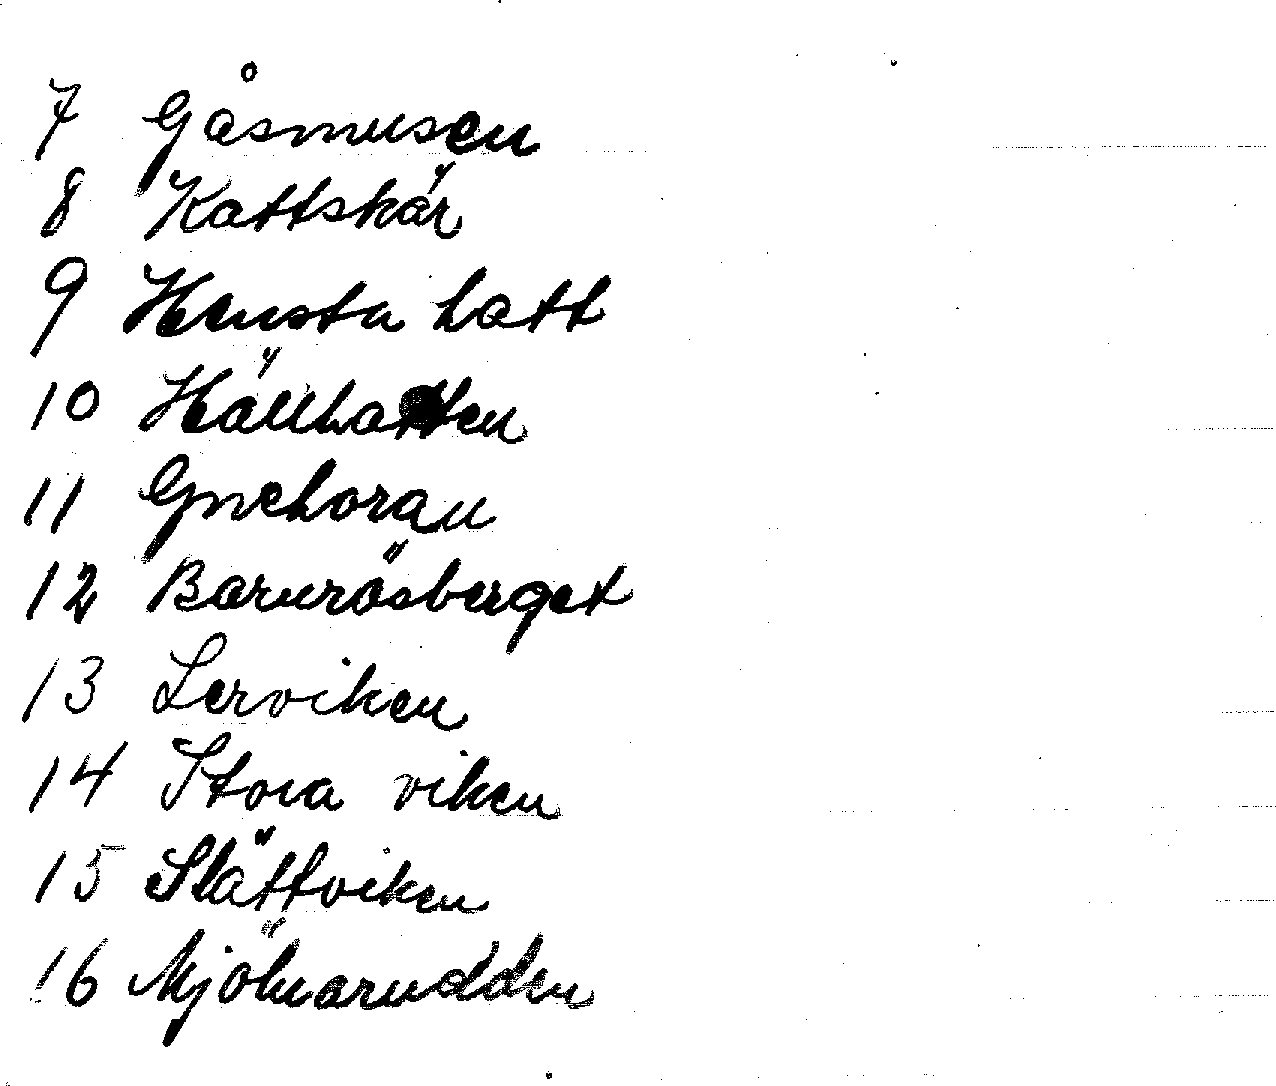 7 Gåsmusen
8 Kattskär
9 Hensta hatt
10 Hällhatten
11
12 Barnrösberget
13 Lerviken
14 Stora viken
15 Slättviken
16 Mjölnarudden